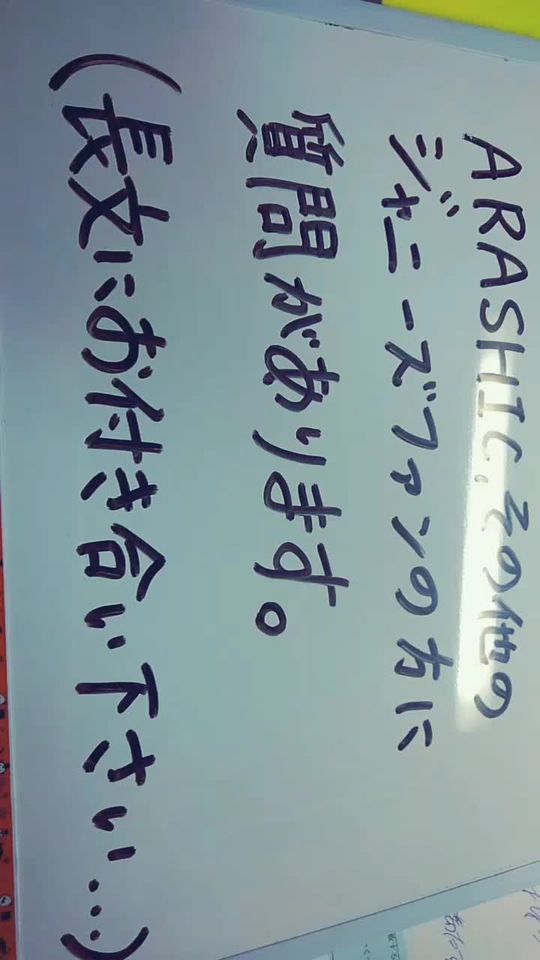 ARASHIC、その他の
ジャニーズファンの方に
質問があります。
(長文にお付き合い下さい…)